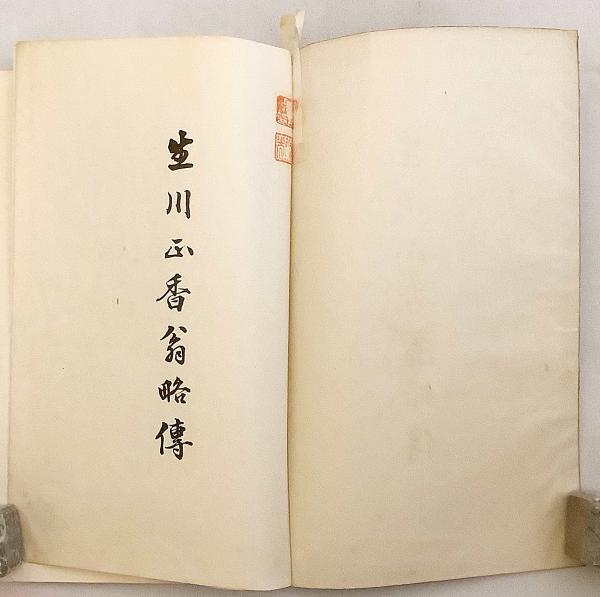 生川正香翁略傳